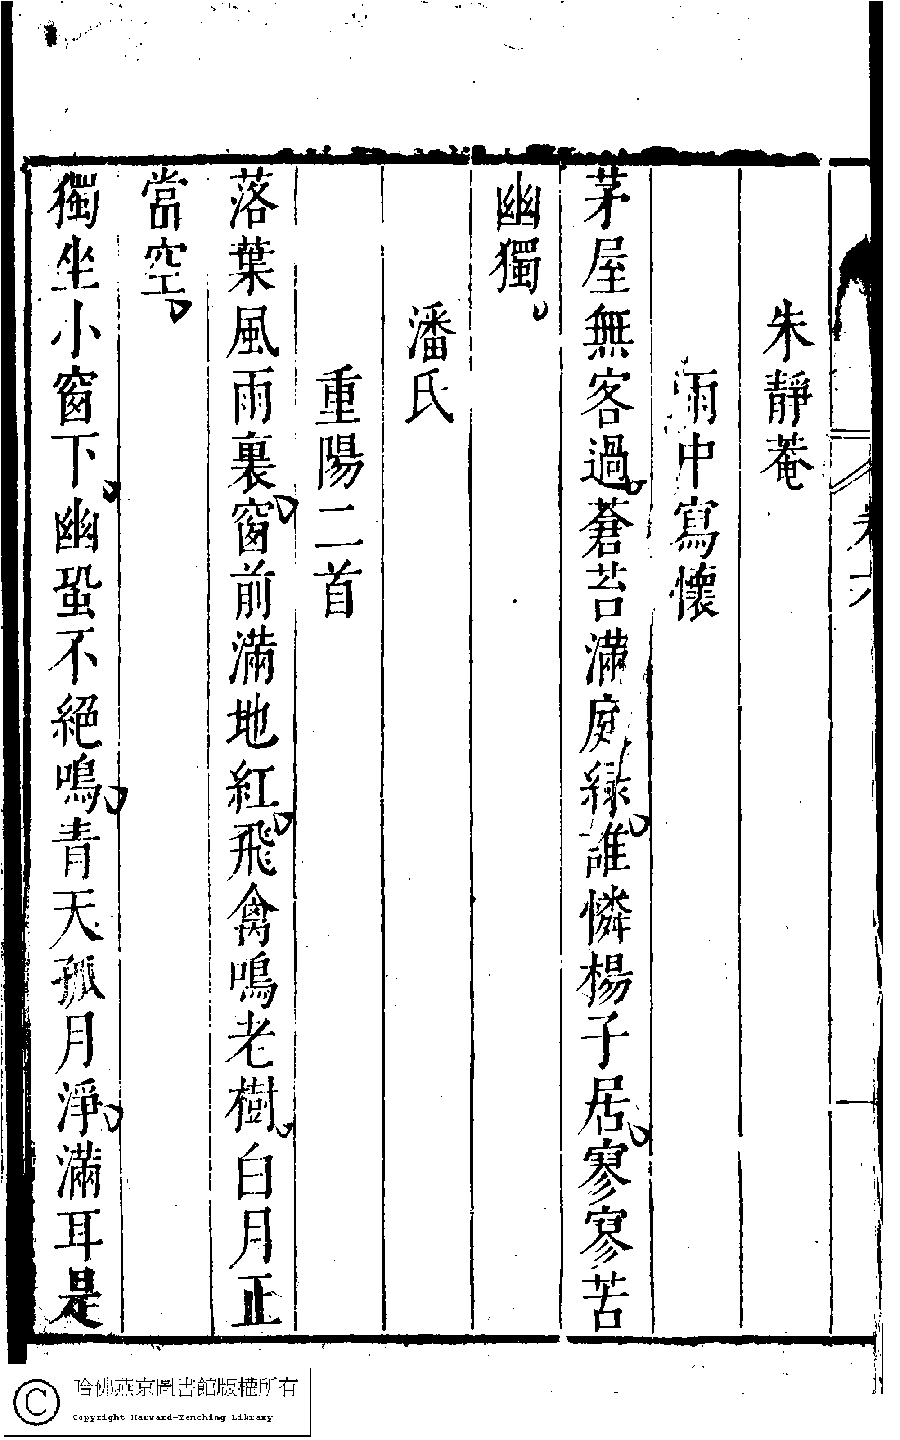 朱靜菴
雨中寫懷
茅屋無客過蒼苔滿庭綠誰憐楊子居寥寥苦
幽獨
潘氏
重陽二首
落葉風雨裏窗前滿地紅飛禽鳴老樹白月正
當空
獨坐小窗下幽蛩不絕鳴青天孤月淨滿耳是
哈佛燕京圖書館版權所有
Copyright Harvard-Yenching Library